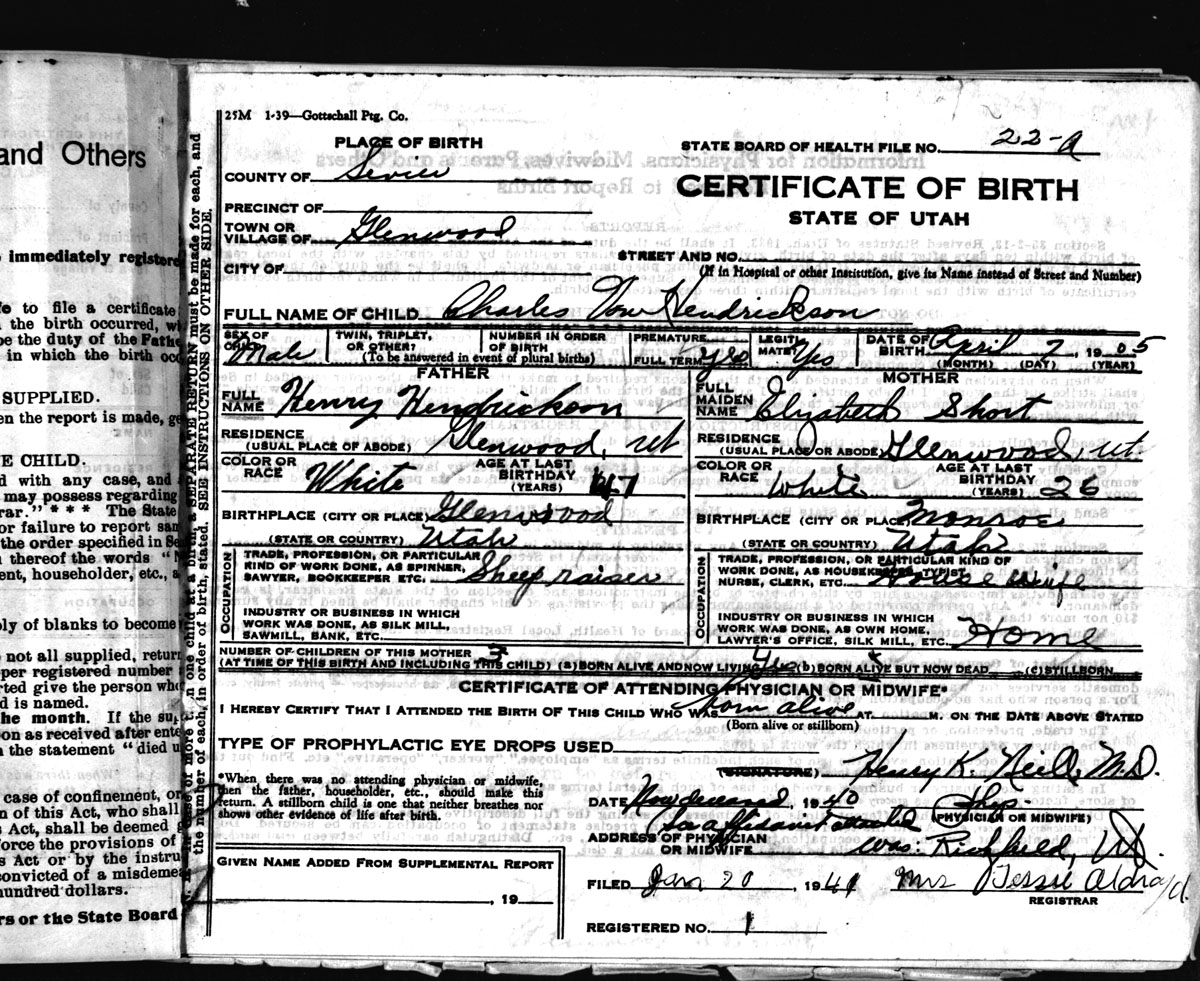 and Others
immediately registere
fe to file a certificate
the birth occurred, w
be the duty of the Fathe
in which the birth occ
SUPPLIED.
en the report is made, ge
E CHILD.
d with any case, and
may possess regarding
rar." * * * The State
or failure to report sam
the order specified in Se
thereof the words "N
ent, householder, etc., a
ply of blanks to become
not all supplied, return
per registered number
rted give the person who
d is named.
he month. If the su
on as received after ente
the statement "died u
case of confinement, or
n of this Act, who shall
s Act, shall be deemed g
force the provisions of
s Act or by the instru
convicted of a misdeme
hundred dollars.
rs or the State Board
one child at a birth, a SEPARATE RETURN must be made for each, and
the number of each, in order of birth, stated. SEE INSTRUCTIONS ON OTHER SIDE.
25M 1-39—Gottschall Ptg. Co.
PLACE OF BIRTH
STATE BOARD OF HEALTH FILE NO. 22-A
COUNTY OF Sevier
CERTIFICATE OF BIRTH
STATE OF UTAH
PRECINCT OF
TOWN OR VILLAGE OF Glenwood
STREET AND NO.
(If in Hospital or other Institution, give its Name instead of Street and Number)
CITY OF
FULL NAME OF CHILD Charles Von Hendrickson
SEX OF CHILD Male TWIN, TRIPLET, OR OTHER? NUMBER IN ORDER OF BIRTH (To be answered in event of plural births) PREMATURE FULL TERM yes LEGITIMATE? Yes DATE OF BIRTH April 2, 1905 (MONTH) (DAY) (YEAR)
FATHER
FULL NAME Henry Hendrickson
RESIDENCE (USUAL PLACE OF ABODE) Glenwood, Ut
COLOR OR RACE White AGE AT LAST BIRTHDAY (YEARS) 47
BIRTHPLACE (CITY OR PLACE) Glenwood
(STATE OR COUNTRY) Utah
OCCUPATION
TRADE, PROFESSION, OR PARTICULAR KIND OF WORK DONE, AS SPINNER, SAWYER, BOOKKEEPER ETC. Sheep raiser
INDUSTRY OR BUSINESS IN WHICH WORK WAS DONE, AS SILK MILL, SAWMILL, BANK, ETC.
MOTHER
FULL MAIDEN NAME Elizabeth Short
RESIDENCE (USUAL PLACE OR ABODE) Glenwood, Ut.
COLOR OR RACE White AGE AT LAST BIRTHDAY (YEARS) 26
BIRTHPLACE (CITY OR PLACE) Monroe
(STATE OR COUNTRY) Utah
OCCUPATION
TRADE, PROFESSION, OR PARTICULAR KIND OF WORK DONE, AS HOUSEKEEPER, NURSE, CLERK, ETC. House wife
INDUSTRY OR BUSINESS IN WHICH WORK WAS DONE, AS OWN HOME, LAWYER'S OFFICE, SILK MILL, ETC. Home
NUMBER OF CHILDREN OF THIS MOTHER 3
(AT TIME OF THIS BIRTH AND INCLUDING THIS CHILD) (a) BORN ALIVE AND NOW LIVING Yes (b) BORN ALIVE BUT NOW DEAD (c) STILLBORN
CERTIFICATE OF ATTENDING PHYSICIAN OR MIDWIFE*
I HEREBY CERTIFY THAT I ATTENDED THE BIRTH OF THIS CHILD WHO WAS born alive AT M. ON THE DATE ABOVE STATED
(Born alive or stillborn)
TYPE OF PROPHYLACTIC EYE DROPS USED
*When there was no attending physician or midwife,
then the father, householder, etc., should make this
return. A stillborn child is one that neither breathes nor
shows other evidence of life after birth.
(SIGNATURE) Henry K. Neill, M.D.
DATE Now deceased, 1940 Phys.
(PHYSICIAN OR MIDWIFE)
(See affidavit attached
ADDRESS OF PHYSICIAN OR MIDWIFE was: Richfield, Ut.
GIVEN NAME ADDED FROM SUPPLEMENTAL REPORT
, 19
FILED Jan 20, 1941 Mrs Jessie
REGISTRAR
REGISTERED NO. 1